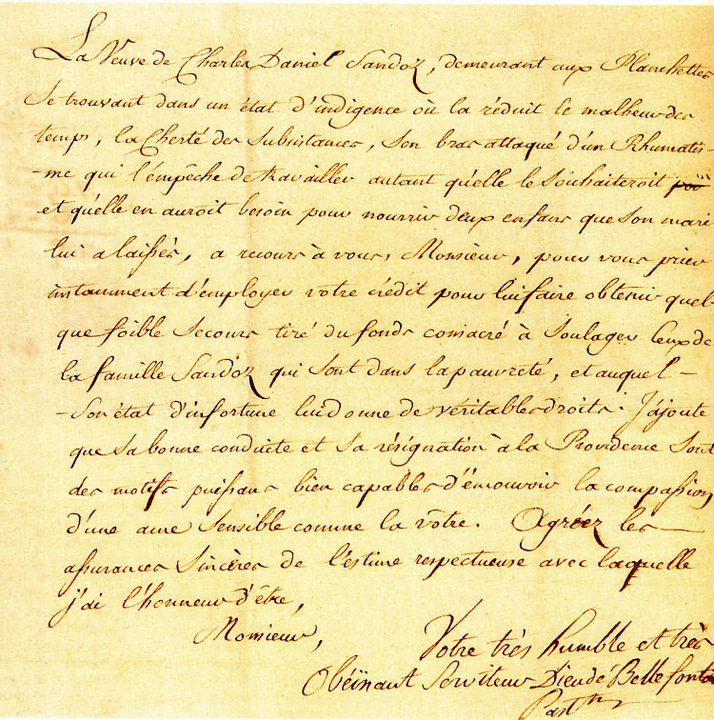 La Veuve de Charles Daniel Sandoz, demeurant aux Planchettes
Se trouvant dans un état d'indigence où la réduit le malheur des
temps, la Cherté des Subsistances, Son bras attaqué d'un Rhumatis-
-me qui l'empêche de travailler autant qu'elle le Souhaiteroit
et qu'elle en auroit besoin pour nourrir deux enfans que Son mari
lui a laissés, a recours à vous, Monsieur, pour vous prier
instamment d'employer votre crédit pour lui faire obtenir quel-
que foible Secours tiré du fonds consacré à Soulager Ceux de
la famille Sandoz qui Sont dans la pauvreté, et auquel –
-Son état d'infortune lui donne de véritables droits. J'ajoute
que Sa bonne conduite et Sa résignation à la Providence Sont
des motifs puissans bien capables d'émouvoir la compassion
d'une ame Sensible comme la vôtre. Agréez les —
assurances Sincères de l'estime respectueuse avec laquelle
j'ai l'honneur d'être,
Monsieur,
Votre très humble et très
Obéïssant Serviteur Dieudé Bellefont